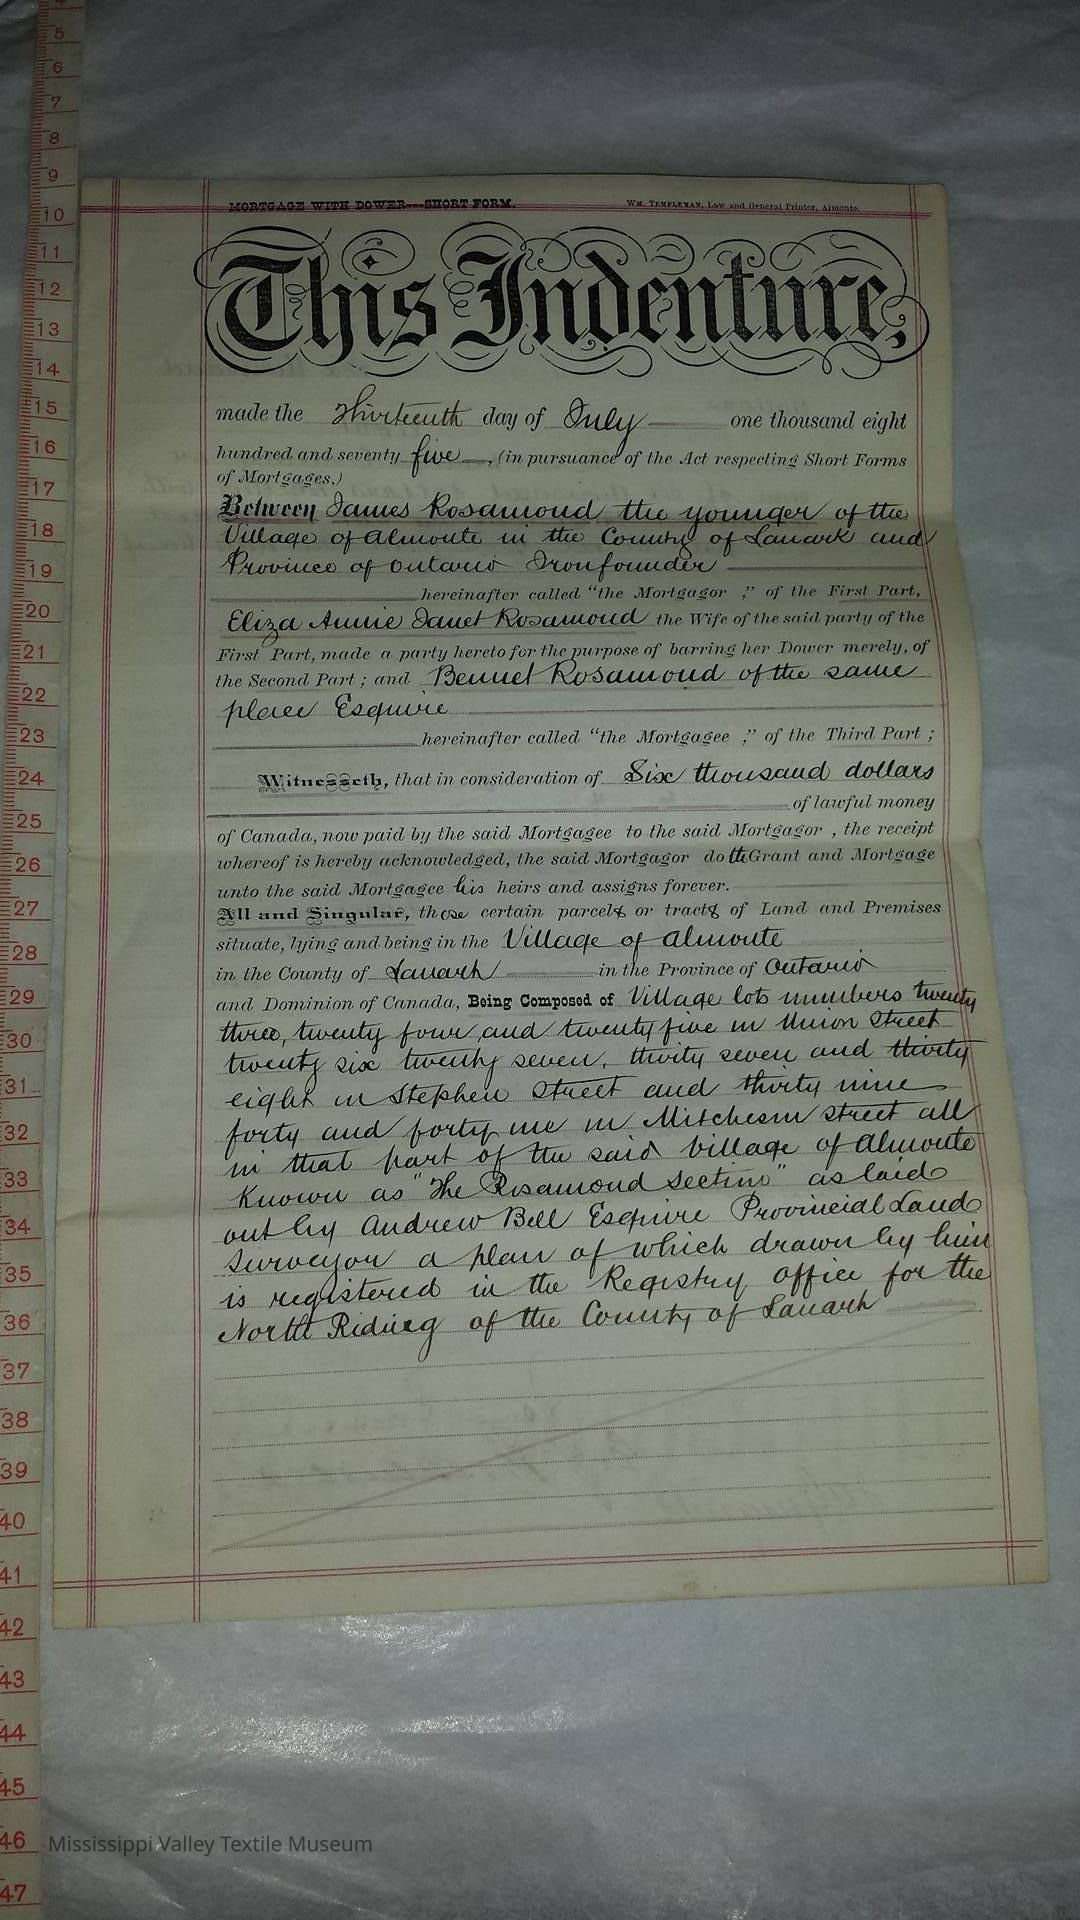 4
5
6
7
8
9
10
11
12
13
14
15
16
17
18
19
20
21
22
23
24
25
26
27
28
29
30
31
32
33
34
35
36
37
38
39
40
41
42
43
44
45
46
47
MORTGAGE WITH DOWER---SHORT FORM. WM. TEMPLEMAN, Law and General Printer, Almonte.
This Indenture,
made the Thirteenth day of July one thousand eight
hundred and seventy five, (in pursuance of the Act respecting Short Forms
of Mortgages,)
Between James Rosamond the younger of the
Village of Almonte in the County of Lanark and
Province of Ontario Ironfounder
hereinafter called "the Mortgagor ," of the First Part,
Eliza Annie Janet Rosamond the Wife of the said party of the
First Part, made a party hereto for the purpose of barring her Dower merely, of
the Second Part ; and Bennet Rosamond of the same
place Esquire
hereinafter called "the Mortgagee ;" of the Third Part ;
Witnesseth, that in consideration of Six thousand dollars
of lawful money
of Canada, now paid by the said Mortgagee to the said Mortgagor , the receipt
whereof is hereby acknowledged, the said Mortgagor doth Grant and Mortgage
unto the said Mortgagee his heirs and assigns forever.
All and Singular, those certain parcels or tracts of Land and Premises
situate, lying and being in the Village of Almonte
in the County of Lanark in the Province of Ontario
and Dominion of Canada, Being Composed of Village lots numbers twenty
three, twenty four, and twenty five in Union Street
twenty six twenty seven, thirty seven and thirty
eight in Stephen Street and thirty nine
forty and forty one in Mitcheson Street all
in that part of the said village of Almonte
Known as "The Rosamond Section" as laid
out by Andrew Bell Esquire Provincial Land
Surveyor a plan of which drawn by him
is registered in the Registry office for the
North Riding of the County of Lanark
Mississippi Valley Textile Museum